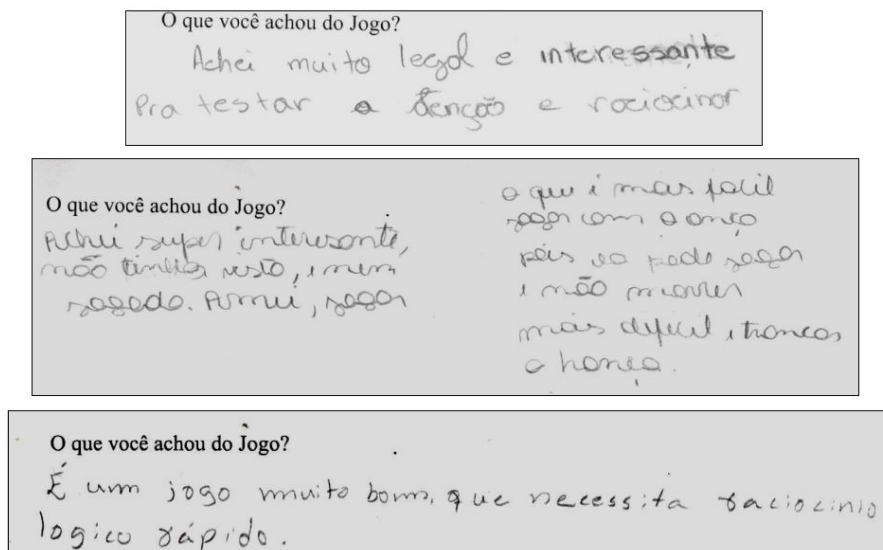 O que você achou do Jogo?
Achei muito legal e interessante
Pra testar a tenção e raciocinar
O que você achou do Jogo?
Achei super interesante,
não tinha visto, e nem
jogado. Amei, jogar
o que é mas facil
jogar com a onça
pois so pode jogar
e não morrer
mais dificil e trancar
a honça.
O que você achou do Jogo?
É um jogo muito bom, que necessita raciocinio
logico rápido.